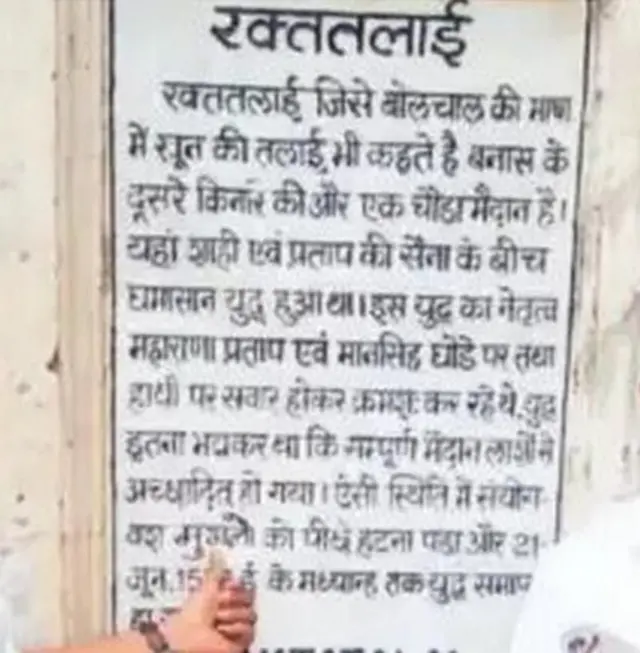 रक्ततलाई
रक्ततलाई जिसे बोलचाल की भाषा
में खून की तलाई भी कहते है बनास के
दूसरे किनारे की और एक चौडा मैदान है।
यहां शाही एवं प्रताप की सैना के बीच
घमासान युद्ध हुआ था। इस युद्ध का नेतृत्व
महाराणा प्रताप एवं मानसिंह घोडे पर तथा
हाथी पर सवार होकर क्रमशः कर रहे थे, युद्ध
इतना भयकर था कि सम्पूर्ण मैदान लाशों से
अच्छादित हो गया। ऐसी स्थिति में संयोग-
वश मुगलो को पीछे हटना पडा और 21-
जून, 15 ई के मध्यान्ह तक युद्ध समाप्